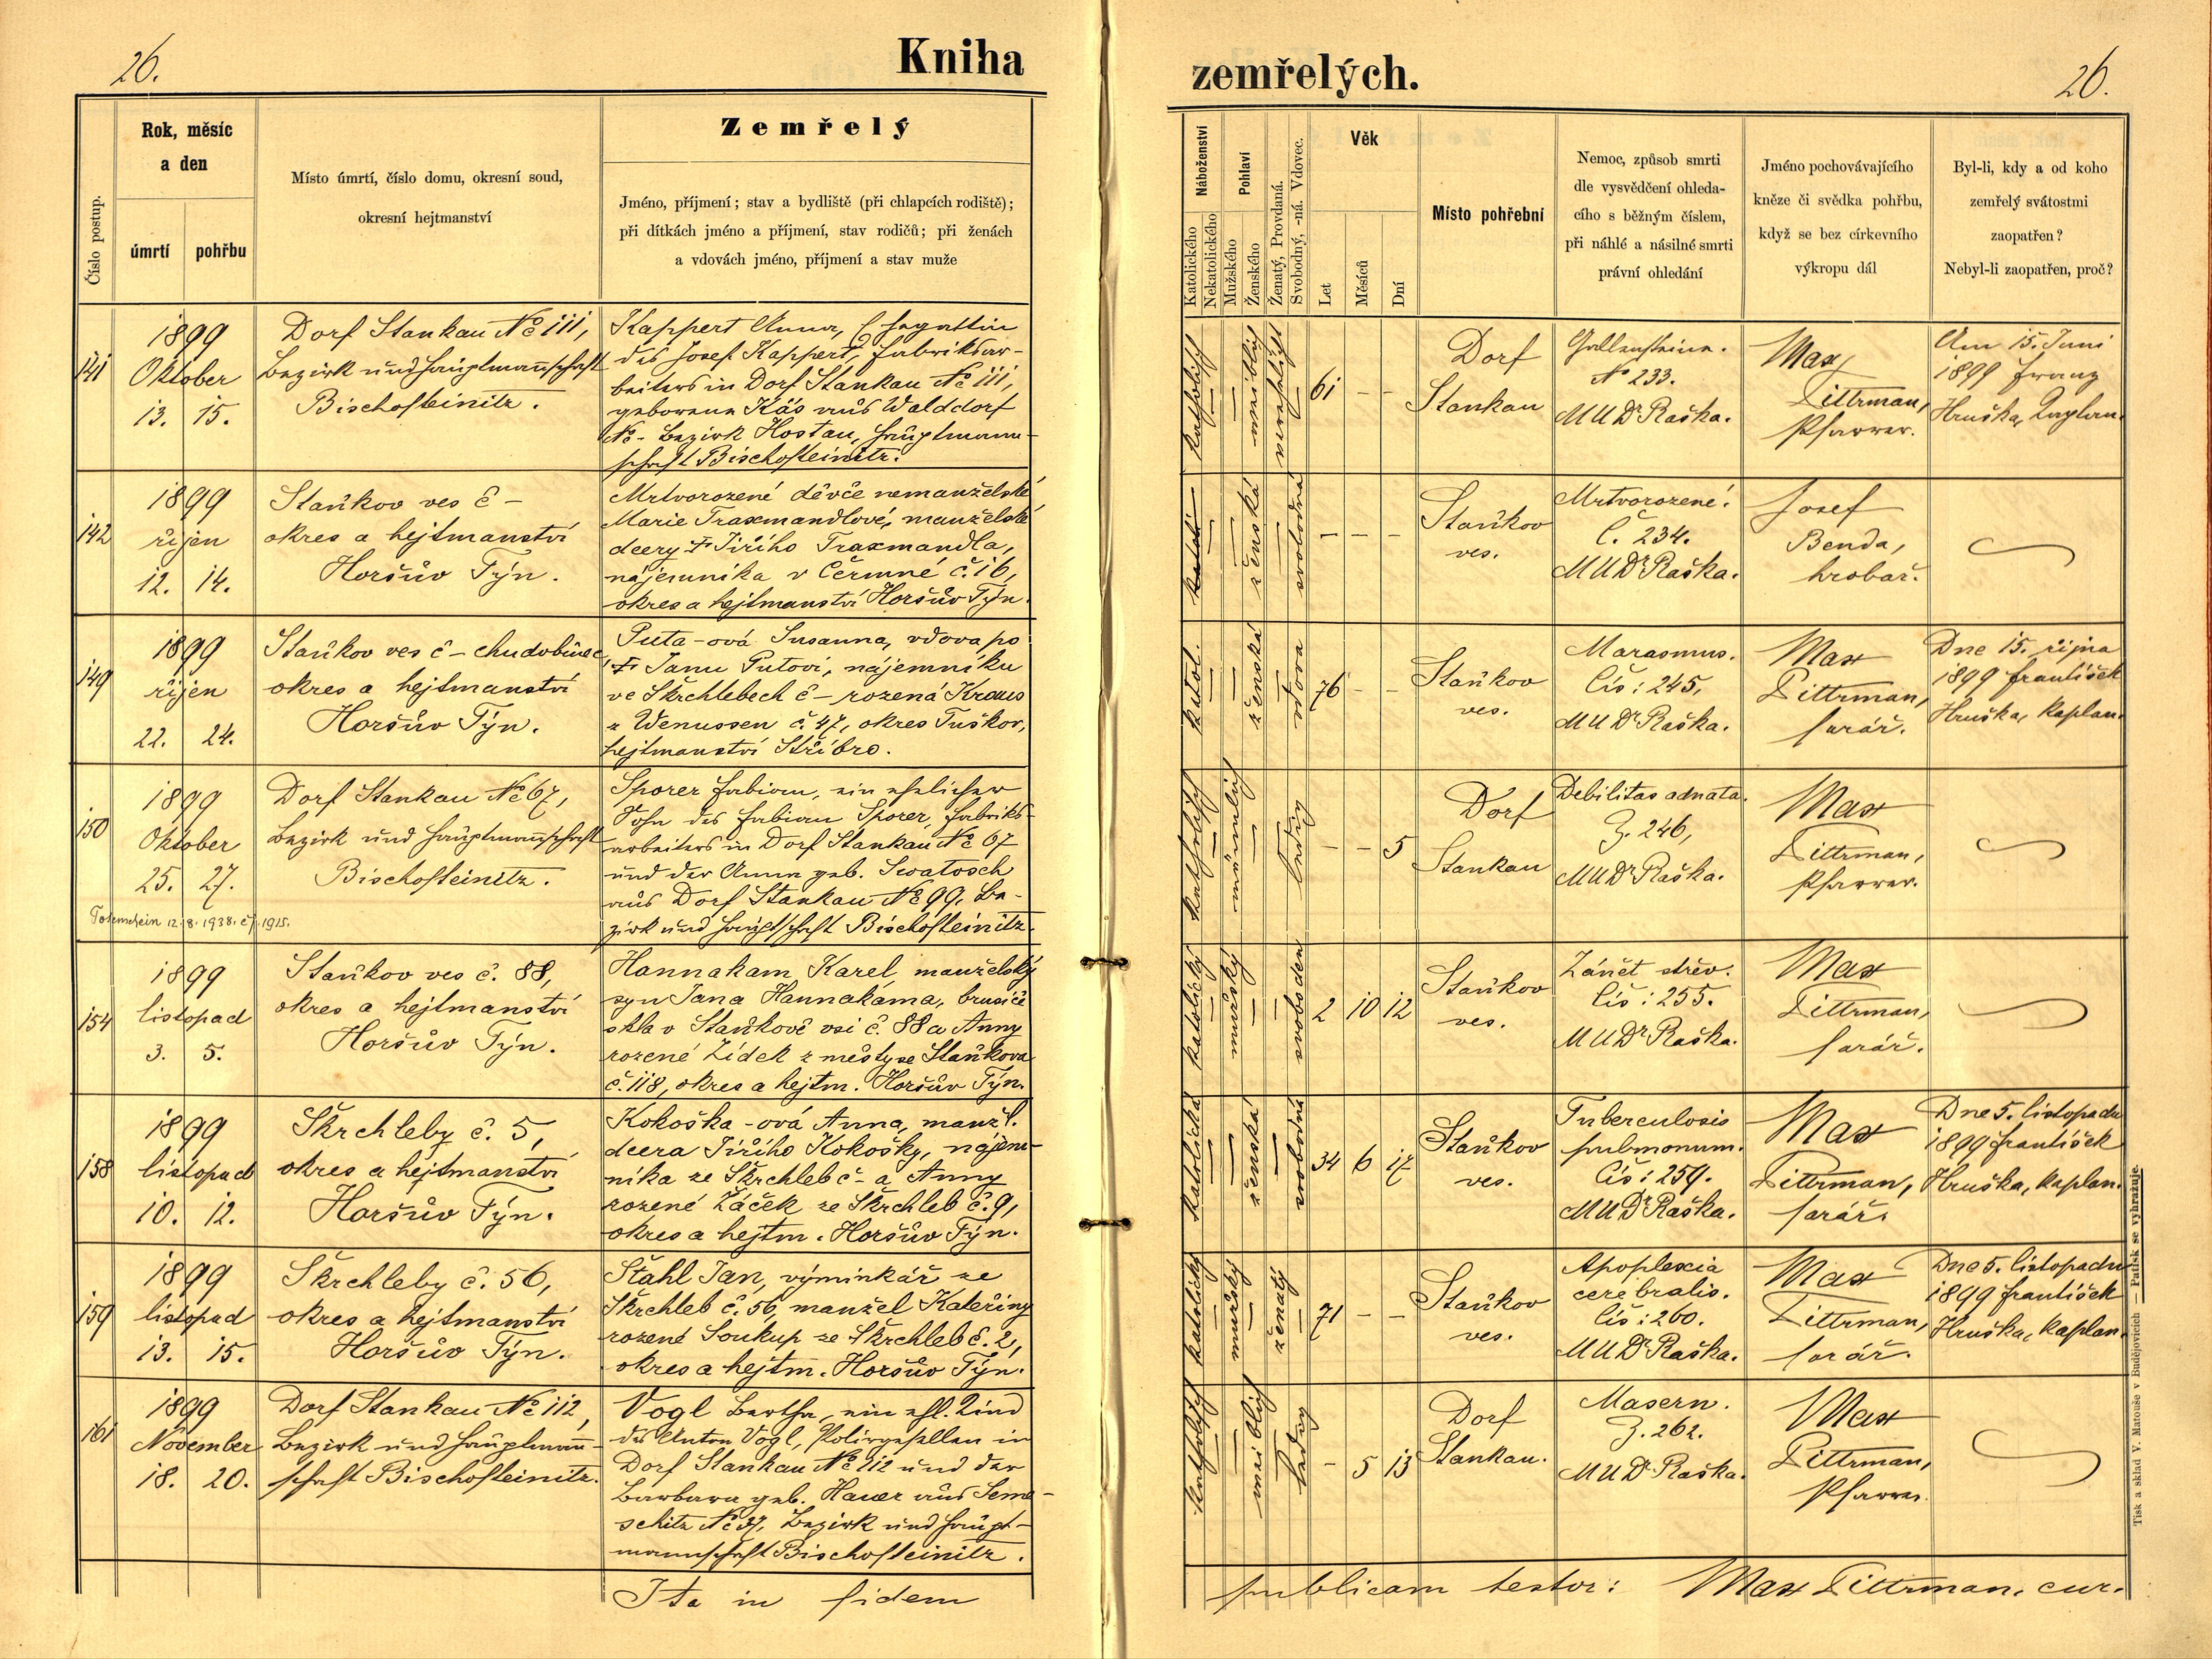 26.
Kniha
Číslo postup.
Rok, měsíc
a den
úmrtí
pohřbu
Místo úmrtí, číslo domu, okresní soud,
okresní hejtmanství
Zemřelý
Jméno, příjmení; stav a bydliště (při chlapcích rodiště);
při dítkách jméno a příjmení, stav rodičů; při ženách
a vdovách jméno, příjmení a stav muže
141
1899
Oktober
13. 15.
Dorf Stankau № 111,
Bezirk und Hauptmannschaft
Bischofteinitz.
Kappert Anna, Ehegattin
des Josef Kappert, Fabriksar-
beiters in Dorf Stankau № 111,
geborene Käs aus Walddorf
№ - Bezirk Hostau, Hauptmann-
schaft Bischofteinitz.
142
1899
říjen
12. 14.
Staňkov ves č -
okres a hejtmanství
Horšův Týn.
Mrtvorozené děvče nemanželské
Marie Traxmandlové, manželské
dcery † Jiřího Traxmandla,
nájemníka v Čermné č. 16,
okres a hejtmanství Horšův Týn.
149
1899
říjen
22. 24.
Staňkov ves č - chudobinec
okres a hejtmanství
Horšův Týn.
Puta-ová Susanna, vdova po
† Janu Putovi, nájemníku
ve Škrchlebech č - rozená Kraus
z Wenussen č. 47, okres Tuškov,
hejtmanství Stříbro.
150
1899
Oktober
25. 27.
Totenschein 12.8.1938. čj. 1915.
Dorf Stankau № 67,
Bezirk und Hauptmannschaft
Bischofteinitz.
Sporer Fabian, ein ehelicher
Sohn des Fabian Sporer, Fabriks-
arbeiters in Dorf Stankau № 67
und der Anna geb. Swatosch
aus Dorf Stankau № 99, Be-
zirk und Hauptschaft Bischofteinitz.
154
1899
listopad
3. 5.
Staňkov ves č. 88,
okres a hejtmanství
Horšův Týn.
Hannakam Karel, manželský
syn Jana Hannakáma, brusiče
skla v Staňkově vsi č. 88 a Anny
rozené Žídek z městyse Staňkova
č. 118, okres a hejtm. Horšův Týn.
158
1899
listopad
10. 12.
Škrchleby č. 5,
okres a hejtmanství
Horšův Týn.
Kokoška-ová Anna, manžl.
dcera Jiřího Kokošky, nájem-
níka ze Škrchleb č - a Anny
rozené Žáček ze Škrchleb č. 9,
okres a hejtm. Horšův Týn.
159
1899
listopad
13. 15.
Škrchleby č. 56,
okres a hejtmanství
Horšův Týn.
Štahl Jan, výminkář ze
Škrchleb č. 56, manžel Kateřiny
rozené Soukup ze Škrchleb č. 2,
okres a hejtm. Horšův Týn.
161
1899
November
18. 20.
Dorf Stankau № 112,
Bezirk und Hauptmann-
schaft Bischofteinitz.
Vogl Bertha, ein ehl. Kind
des Anton Vogl, Poliergesellen in
Dorf Stankau № 112 und der
Barbara geb. Hauer aus Seme-
schitz № 37, Bezirk und Haupt-
mannschaft Bischofteinitz.
Ita in fidem
zemřelých.
26.
Náboženství
Katolického
Nekatolického
Pohlaví
Mužského
Ženského
Ženatý, Provdaná.
Svobodný, -ná. Vdovec.
Věk
Let
Měsíců
Dní
Místo pohřební
Nemoc, způsob smrti
dle vysvědčení ohleda-
cího s běžným číslem,
při náhlé a násilné smrti
právní ohledání
Jméno pochovávajícího
kněze či svědka pohřbu,
když se bez církevního
výkropu dál
Byl-li, kdy a od koho
zemřelý svátostmi
zaopatřen?
Nebyl-li zaopatřen, proč?
katholisch
weiblich
verehelicht
61 - -
Dorf
Stankau
Gallensteine.
№ 233.
MUDr Raška.
Max
Dittrman,
Pfarrer.
Am 15. Juni
1899 Franz
Hruška, Kaplan.
katol.
ženská
svobodná
- - -
Staňkov
ves.
Mrtvorozené.
Č. 234.
MUDr Raška.
Josef
Benda,
hrobař.
katol.
ženská
vdova
76 - -
Staňkov
ves.
Marasmus.
Čís: 245,
MUDr Raška.
Max
Dittrman,
farář.
Dne 15. října
1899 František
Hruška, kaplan.
katholisch
männlich
ledig
- - 5
Dorf
Stankau
Debilitas adnata.
Z. 246,
MUDr Raška.
Max
Dittrman,
Pfarrer.
katolický
mužský
svoboden
2 10 12
Staňkov
ves.
Zánět střev.
Čís: 255.
MUDr Raška.
Max
Dittrman,
farář.
katolická
ženská
svobodná
34 6 17
Staňkov
ves.
Tuberculosis
pulmonum.
Čís: 259.
MUDr Raška.
Max
Dittrman,
farář.
Dne 5. listopadu
1899 František
Hruška, kaplan.
katolický
mužský
ženatý
71 - -
Staňkov
ves.
Apoplexia
cerebralis.
Čís: 260.
MUDr Raška.
Max
Dittrman,
farář.
Dne 5. listopadu
1899 František
Hruška, kaplan.
katholisch
weiblich
ledig
- 5 13
Dorf
Stankau.
Masern.
Z. 262.
MUDr Raška.
Max
Dittrman,
Pfarrer.
publicam testor: Max Dittrman, cur.
Tisk a sklad V. Matouše v Budějovicích — Patisk se vyhražuje.